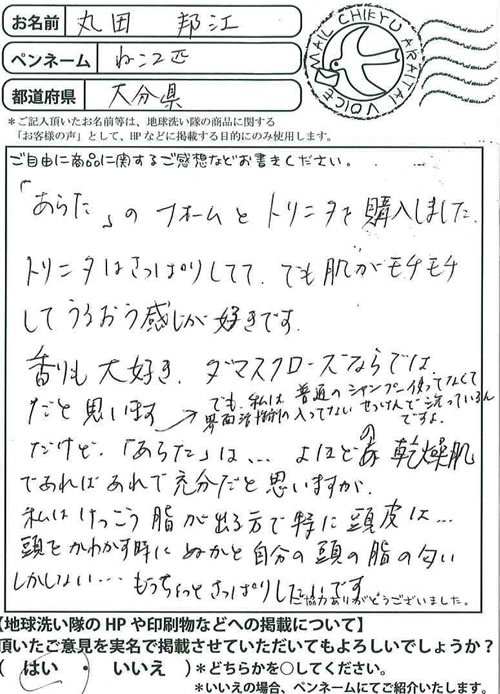 お名前 丸田 邦江
ペンネーム ねこ2匹
都道府県 大分県
MAIL CHIKYU ARAITAI VOICE
*ご記入頂いたお名前等は、地球洗い隊の商品に関する
「お客様の声」として、HPなどに掲載する目的にのみ使用します。
ご自由に商品に関するご感想などお書きください。
「あらた」のフォームとトリニタを購入しました
トリニタはさっぱりしてて、でも肌がモチモチ
してうるおう感じが好きです。
香りも大好き。ダマスクローズならでは
だと思います
でも、私は普通のシャンプー使ってなくて
界面活性剤の入ってない せっけんで洗っているん
ですよ。
だけど、「あらた」は… よほどの 乾燥肌
であればあれで充分だと思いますが、
私はけっこう脂が出る方で特に頭皮は…
頭をかわかす時に ぬかと自分の頭の脂の匂い
しかしない… もうちょっとさっぱりしたいです
ご協力ありがとうございました。
【地球洗い隊のHPや印刷物などへの掲載について】
頂いたご意見を実名で掲載させていただいてもよろしいでしょうか?
( はい ・ いいえ ) *どちらかを○してください。
*いいえの場合、ペンネームにてご紹介いたします。